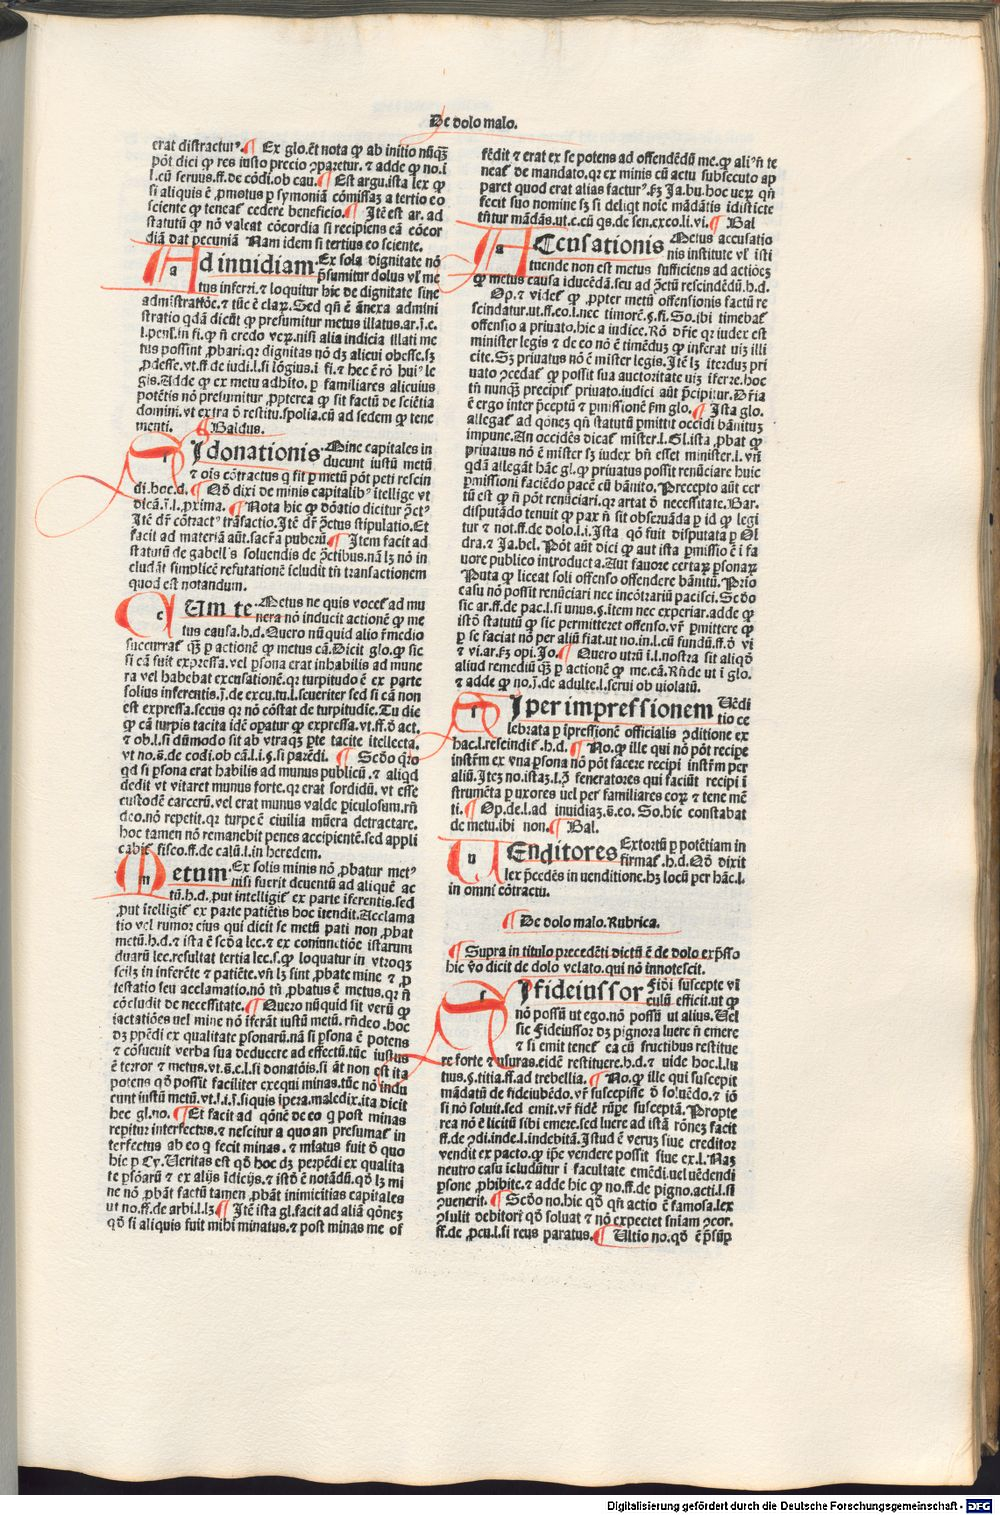 De dolo malo.
erat distractur⁹. ¶ Ex glo. ēt nota ꝙ ab initio nūqꝫ
pōt dici ꝙ res iusto precio ꝯparetur. ⁊ adde ꝙ no. ī
l. cū seruus. ff. de cōdi. ob cau. ¶ Est argu. ista lex ꝙ
si aliquis ē ꝓmotus ꝑ symoniā cōmissaꝫ a tertio eo
sciente ꝙ teneaꞇ̃ cedere beneficio. ¶ Itē est ar. ad
statutū ꝙ nō valeat cōcordia si recipiens eā cōcor
diā dat pecuniā Nam idem si tertius eo sciente.
Ad inuidiam. Ex sola dignitate nō
p̄sumitur dolus vl̓ me
tus inferri. ⁊ loquitur hic de dignitate sine
admīstratiōe. ⁊ tūc ē claꝝ. Sed qn̄ ē ānexa admini
stratio qdā dicūt ꝙ presumitur metus illatus. ar. ī. e.
l. penl̓. in fi. ꝙ n̄ credo veꝝ. nisi alia indicia illati me
tus possint ꝓbari. qꝛ dignitas nō dꝫ alicui obesse. sꝫ
ꝓdesse. vt. ff. de iudi. l. si lōgius. ī fi. ⁊ hec ē rō hui⁹ le
gis. Adde ꝙ ex metu adhito. ꝑ familiares alicuius
potētis nō presumitur. ꝓpterea ꝙ sit factū de sciētia
domini. vt extra ō restitu. spolia. cū ad sedem ꝙ tene
menti. ¶ Baldus.
Si donationis. Mine capitales in
ducunt iustū metū
⁊ oīs cōtractus q fit ꝑ metū pōt peti rescin
di. hoc. d. ¶ Qō dixi de minis capitalib⁹ ītellige vt
dicā. ī. l. ꝓxima. ¶ Nota hic ꝙ dōatio dicitur ꝯct⁹
Itē dr̄ cōtract⁹ trāsactio. Itē dr̄ ꝯctus stipulatio. Et
facit ad materiā aūt. sacr̄a puberū ¶ Item facit ad
statutū de gabell̓s soluendis de ꝯctibus. nā lꝫ nō in
cludāt simplicē refutationē īcludit tn̄ transactionem
quod est notandum.
Cum te. Metus ne quis voceꞇ̃ ad mu
nera nō inducit actionē ꝙ me
tus causa. h. d. Quero nūquid alio r̄medio
succurraꞇ̃ qꝫ ꝑ actionē ꝙ metus cā. Dicit glo. ꝙ sic
si cā fuit expressa. vel ꝑsona erat inhabilis ad mune
ra vel habebat excusationē. qꝛ turpitudo ē ex parte
solius inferentis. ī. de excu. tu. l. seueriter sed si cā non
est expressa. secus qꝛ nō cōstat de turpitudie. Tu die
ꝙ cā turpis tacita idē oꝑatur ꝙ expressa. vt. ff. ō act.
⁊ ob. l. si dūmodo sit ab vtraqꝫ ꝑte tacite ītellecta.
vt no. s̄. de codi. ob cā. l. i. §. si parēdi. ¶ Scōo q̄ro
qd si ꝑsona erat habilis ad munus publicū. ⁊ aliqd
dedit vt vitaret munus forte. qꝛ erat sordidū. vt esse
custodē carcerū. vel erat munus valde ꝑiculosum. rn̄
deo. nō repetit. qꝛ turpe ē ciuilia mūera detractare.
hoc tamen nō remanebit penes accipientē. sed appli
cabiꞇ̃ fisco. ff. de calū. l. in heredem.
Metum. Ex solis minis nō ꝓbatur met⁹
nisi fuerit deuentū ad aliquē ac
tū. h. d. ꝓut intelligiꞇ̃ ex parte īferentis. sed
ꝓut ītelligiꞇ̃ ex parte patiētis hoc itendit. Acclama
tio vel rumor eius qui dicit se metū pati non ꝓbat
metū. h. d. ⁊ ista ē scōa lec. ⁊ ex coniunctiōe istarum
duarū lec. resultat tertia lec. s. ꝙ loquatur in vtroqꝫ
scilꝫ in inferēte ⁊ patiēte. vn̄ lꝫ sint ꝓbate mine ⁊ ꝓ
testatio seu acclamatio. nō tn̄ ꝓbatus ē metus. qꝛ n̄
cōcludit de necessitate. ¶ Quero nūquid sit verū ꝙ
iactatiōes vel mine nō iferāt iustū metū. rn̄deo. hoc
dꝫ ppēdi ex qualitate ꝑsonarū. nā si ꝑsona ē potens
⁊ cōsueuit verba sua deducere ad effectū. tūc iustus
ē terror ⁊ metus. vt. s̄. e. l. si donatōis. si āt non est ita
potens qō possit faciliter exequi minas. tūc nō indu
cunt iustū metū. vt. l. i. §. si quis ipera. maledix. ita dicit
hec gl. no. ¶ Et facit ad qōnē de eo q post minas
reꝑitur interfectus. ⁊ nescitur a quo an presumaꞇ̃ in
terfectus ab eo q fecit minas. ⁊ mīatus fuit ō quo
hic ꝑ Cy. Veritas est qō hoc dꝫ perpēdi ex qualita
te ꝑsōarū ⁊ ex alijs īdicijs. ⁊ istō ē notādū. qō lꝫ mi
ne nō ꝓbāt factū tamen ꝓbāt inimicitias capitales
ut no. ff. de arbi. l. lꝫ ¶ Itē ista gl. facit ad aliā qōneꝫ
qō si aliquis fuit mihi minatus. ⁊ post minas me of
fēdit ⁊ erat ex se potens ad offendēdū me. ꝙ ali⁹ n̄ te
neaꞇ̃ de mandato. qꝛ ex minis cū actu subsecuto ap
paret quod erat alias factur⁹. ꝗꝫ Ja. bu. hoc ueꝝ qn̄
fecit suo nomine sꝫ si deliqt noīe mādātis īdistīcte
tn̄tur mādās. ut. c. cū qs. de sen. exco. li. vi. ¶ Bal
Accusationis Metus accusatio
nis institute vl̓ isti
tuende non est metus sufficiens ad actiōeꝫ
ꝙ metus causa iducēdā. seu ad ꝯctū rescindēdū. h. d.
Op. ⁊ videꞇ̃ ꝙ ꝓpter metū offensionis factū re
scindatur. ut. ff. eo. l. nec timorē. §. fi. So. ibi timebaꞇ̃
offensio a priuato. hic a indice. Rō dr̄ie qꝛ iudex est
minister legis ⁊ de eo nō ē timēduꝫ ꝙ inferat uiꝫ illi
cite. Sꝫ priuatus nō ē mister legis. Itē lꝫ iterduꝫ pri
uato ꝯcedaꞇ̃ ꝙ possit sua auctoritate uiꝫ iferre. hoc
tn̄ nunqꝫ precipiꞇ̃ priuato. iudici aūt p̄cipitur. Dr̄ia
ē ergo inter p̄ceptū ⁊ ꝑmissionē ẜm glo. ¶ Ista glo.
allegaꞇ̃ ad qōneꝫ qn̄ statutū ꝑmittit occidi bānituꝫ
impune. An occidēs dicaꞇ̃ mister. l. Gl. ista ꝓbat ꝙ
priuatus nō ē mister sꝫ iudex bn̄ esset minister. l. vn̄
qdā allegāt hāc gl. ꝙ priuatus possit renūciare huic
ꝑmissioni faciēdo pacē cū bānito. Precepto aūt cer
tū est ꝙ n̄ pōt renūciari. qꝛ artat ō necessitate. Bar.
disputādo tenuit ꝙ pax n̄ sit obseruāda ꝑ id ꝙ legi
tur ⁊ not. ff. de dolo. l. i. Ista qō fuit disputata ꝑ Ol
dra. ⁊ Ja. bel. Pōt aūt dici ꝙ aut ista ꝑmissio ē ī fa
uore publico introducta. Aut fauore certaꝝ ꝑsonaꝝ
Puta ꝙ liceat soli offenso offendere bānitū. Prīo
casu nō possit renūciari nec incōtrariū pacisci. Scōo
sic ar. ff. de pac. l. si unus. §. item nec experiar. adde ꝙ
istō statutū ꝙ sic permitteret offenso. vr̄ ꝑmittere ꝙ
ꝑ se faciat nō per aliū fiat. ut no. in. l. cū fundū. ff. ō vi
⁊ vi. ar. ꝗꝫ opi. Jo. ¶ Quero utrū ī. l. nostra sit aliqō
aliud remediū qꝫ ꝑ actionē ꝙ me. cā. Rn̄de ut ī glo.
⁊ adde ꝙ no. ī. de adulte. l. serui ob uiolatū.
Si per impressionem Uēdi
tio ce
lebrata ꝑ īpressionē officialis ꝯditione ex
hac. l. rescindiꞇ̃. h. d. ¶ No. ꝙ ille qui nō pōt recipe
instr̄m ex vna ꝑsona nō pōt facere recipi instr̄m per
aliū. Iteꝫ no. istaꝫ. l. ꝯ feneratores qui faciūt recipi ī
strumēta ꝑ uxores uel per familiares eoꝝ ⁊ tene mē
ti. ¶ Op. de. l. ad inuidiaꝫ. s̄. eo. So. hic constabat
de metu. ibi non. ¶ Bal.
Venditores Extortū ꝑ potētiam in
firmaꞇ̃. h. d. Qō dixit
lex p̄cedēs in uenditione. hꝫ locū per hāc. l.
in omni cōtractu.
¶ De dolo malo. Rubrica.
¶ Supra in titulo precedēti dictū ē de dolo exp̄sso
hic v̄o dicit de dolo velato. qui nō innotescit.
Si fideiussor Fidēi suscepte vī
culū efficit. ut ꝙ
nō possū ut ego. nō possū ut alius. Uel
sic Fideiussor dꝫ pignora luere n̄ emere
⁊ si emit teneꞇ̃ ea cū fructibus restitue
re forte ⁊ usuras. eidē restituere. h. d. ⁊ uide hoc. l. lu
tius. §. titia. ff. ad trebellia. ¶ No. ꝙ ille qui suscepit
mādatū de fideiubēdo. vr̄ suscepisse ō soluēdo. ⁊ iō
si nō soluit. sed emit. vr̄ fidē rūpe susceptā. Propte
rea nō ē licitū sibi emere. sed luere ad istā rōneꝫ facit
ff. de ꝯdi. inde. l. indebitā. Istud ē veruꝫ siue creditor
vendit ex pacto. ꝙ ip̄e vendere possit siue ex. l. Naꝫ
neutro casu īcludūtur ī facultate emēdi. uel uēdendi
ꝑsone ꝓhibite. ⁊ adde hic ꝙ no. ff. de pigno. acti. l. si
ꝯuenerit. ¶ Scōo no. hic qō qn̄ actio ē famosa. lex
ꝯsulit debitori qō soluat ⁊ nō expectet sn̄iam ꝯcor.
ff. de ꝓcu. l. si reus paratus. ¶ Ultio no. qō ē p̄sūp
Digitalisierung gefördert durch die Deutsche Forschungsgemeinschaft - DFG